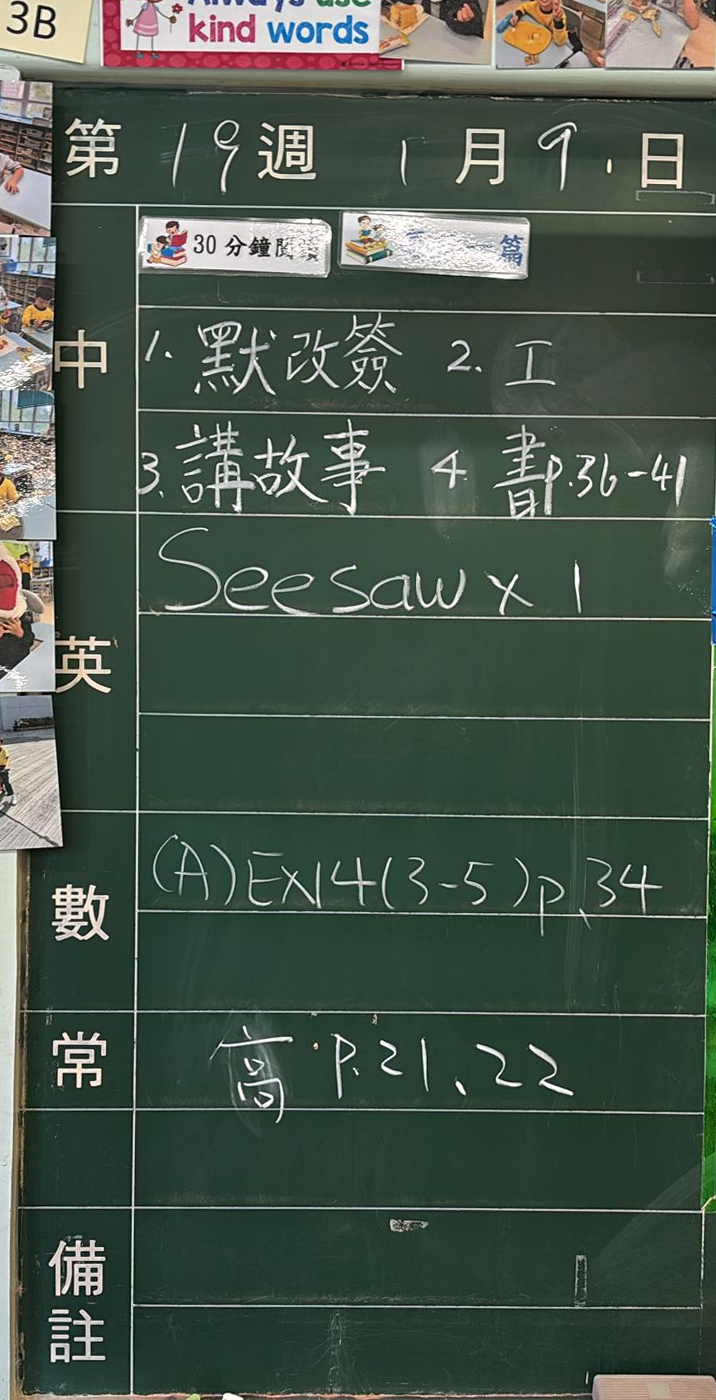 3B
kind words
第 19 週 1 月 9 日
30 分鐘閱
篇
中
1. 默改簽 2. 工
3. 講故事 4. 書p.36-41
英
Seesaw x 1
數
(A) Ex14(3-5)p.34
常
高 p.21、22
備註